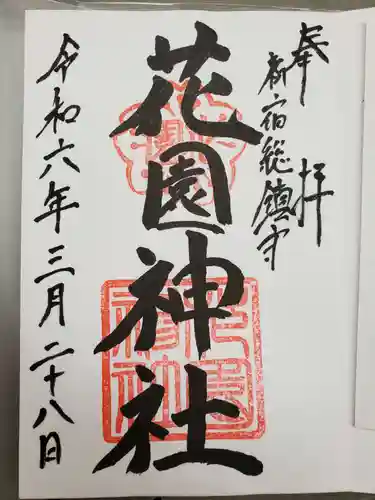 奉拝
新宿総鎮守
花園神社
令和六年三月二十八日